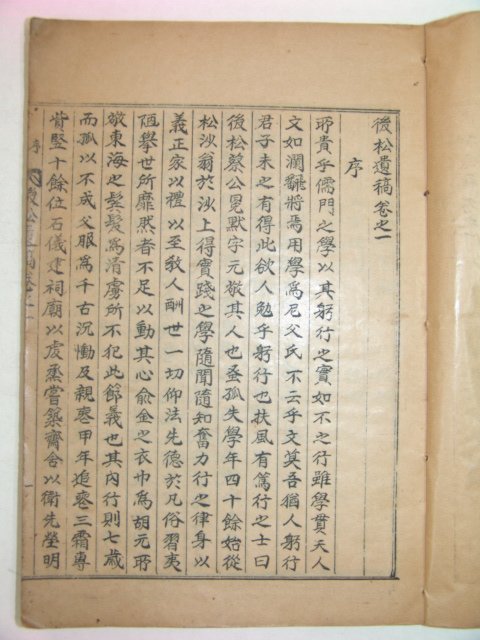 後松遺稿卷之一
序
所貴乎儒門之學以其躬行之實如不之行雖學貫天人
文如瀾飜將焉用學爲尼父氏不云乎文莫吾猶人躬行
君子未之有得此欲人勉乎躬行也扶風有篤行之士曰
後松蔡公冕默字元敬其人也蚤孤失學年四十餘始從
松沙翁於沙上得實踐之學隨聞隨知奮力行之律身以
義正家以禮以至敎人酬世一切仰法先德於凡俗習夷
陋擧世所靡然者不足以動其心兪金之衣巾爲胡元所
敬東海之髮爲淸虜所不犯此節義也其內行則七歲
而孤以不成父服爲千古沉慟及親喪甲年追喪三霜專
貲竪十餘位石儀建祠廟以虔烝嘗築齋舍以衛先塋明
序 後松遺稿卷之一 一